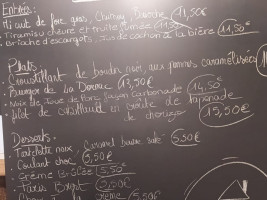 Entrées:
Mi cuit de foie gras, Chutney, Brioche 11,50€
Tiramisu chèvre et truite fumée
Brioche d'escargots, Jus de cochon à la bière 11,50
Plats:
Croustillant de boudin noir, aux pommes caramélisées
Burger de La Dorine 13,50€
Noix de Joue de Porc façon Carbonade 14,50€
filet de cabillaud en croûte de tapenade
de chorizo 15,50€
Desserts:
Tartelette noix, Caramel beurre salé 5.50€
Coulant choc 6,50€
Crème Brûlée 5,50€
Paris Brest
5,50€